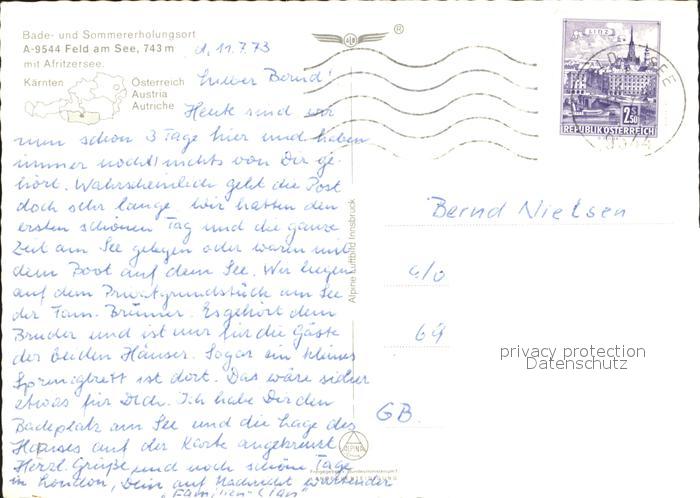 Bade- und Sommererholungsort
A-9544 Feld am See, 743 m
mit Afritzersee.
Kärnten
Österreich
Austria
Autriche
®
d. 11.7.73
Lieber Bernd!
Heute sind wir
nun schon 3 Tage hier und haben
immer noch nichts von Dir ge-
hört. Wahrscheinlich geht die Post
doch sehr lange. Wir hatten den
ersten schönen Tag und die ganze
Zeit am See gelegen oder waren mit
dem Boot auf dem See. Wir liegen
auf dem Privatgrundstück am See
der Fam. Brunner. Es gehört dem
Bruder und ist nur für die Gäste
der beiden Häuser. Sogar ein kleines
Sprungbrett ist dort. Das wäre sicher
etwas für Dich. Ich habe Dir den
Badeplatz am See und die Lage des
Hauses auf der Karte angekreuzt.
Herzl. Grüße und noch schöne Tage
in London, Dein auf Nachricht wartender
"Familien-Clan"
Alpine Luftbild Innsbruck
LINZ
2.50
S
REPUBLIK ÖSTERREICH
SEE
9544
Bernd Nielsen
c/o
69
GB.
privacy protection
Datenschutz
ALPINE